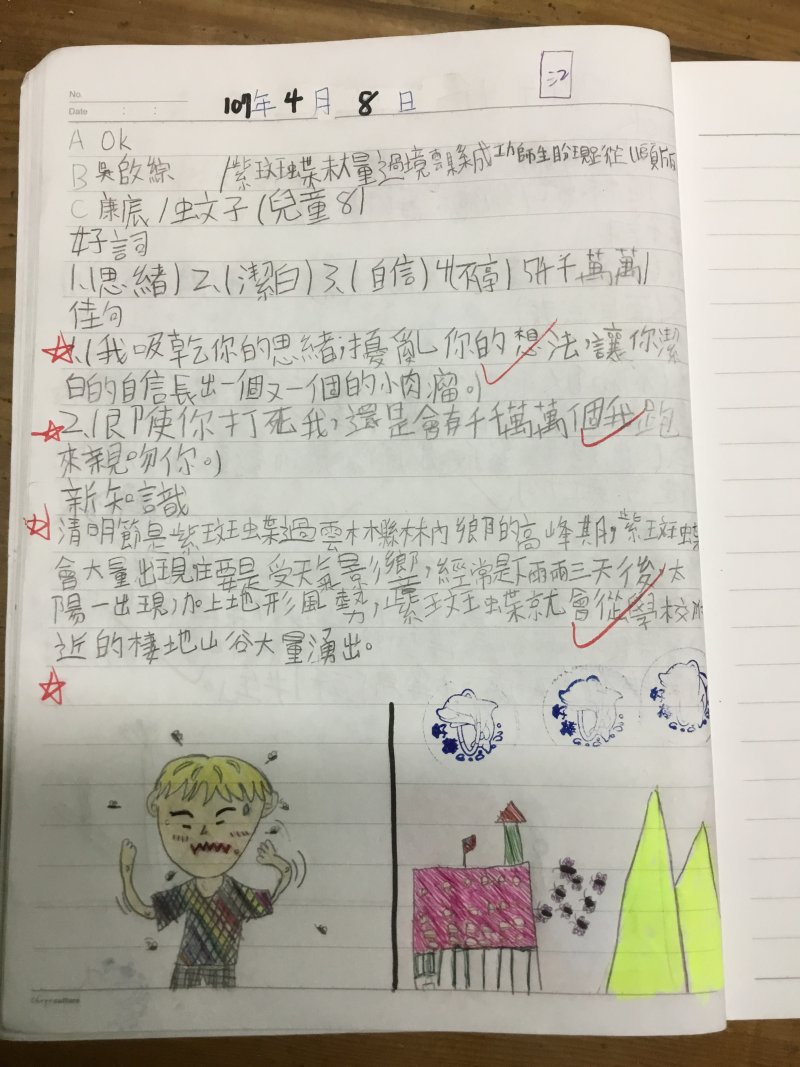 No.
Date : :
107年4月8日
A OK
B 吳啟綜 /紫斑蝶大量過境雲縣成功師生盼現蹤從(1頭版
C 康宸/蚊子(兒童8)
好詞
1.(思緒)2.(潔白)3.(自信)4(不停)5.(千千萬萬)
佳句
1.(我吸乾你的思緒,擾亂你的想法,讓你潔
白的自信長出一個又一個的小肉瘤。)
2.(即使你打死我,還是會有千千萬萬個我跑
來親吻你。)
新知識
清明節是紫斑蝶過雲林縣林內鄉的高峰期,紫斑蝶
會大量出現主要是受天氣影響,經常是下雨兩三天後,太
陽一出現,加上地形風勢,紫斑蝶就會從學校附
近的棲地山谷大量湧出。